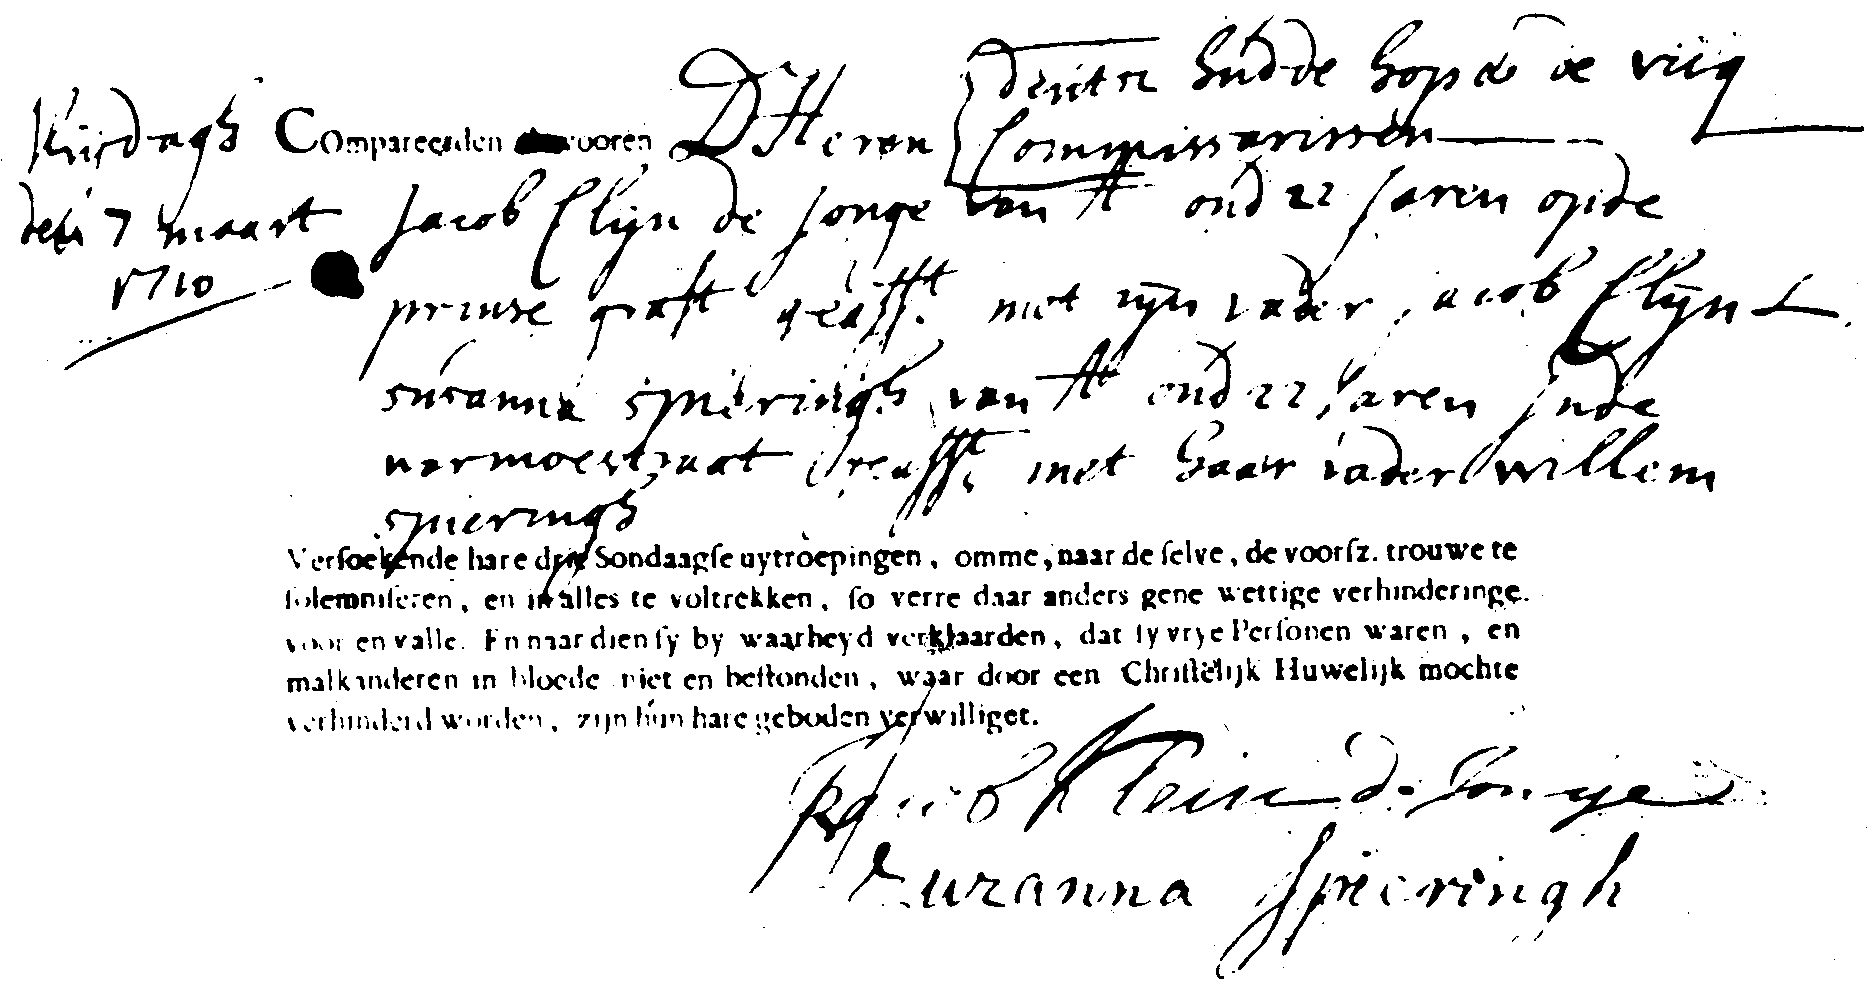 D Heren
Hudde
Vrijdagh Compareerden voor en Commissarissen
den 7 maart Jacob Clijn de Jonge van A oud 22 Jaren op de
1710
prinse graft geasst. met zijn vader Jacob Clijn &
susanna spieringh van A oud 22 Jaren Jnde
warmoestraat geasst. met haar vader willem
spieringh
Versoekende hare drie Sondaagse uytroepingen, omme, naar de selve, de voorsz. trouwe te
solemniseren, en in alles te voltrekken, so verre daar anders gene wettige verhinderinge.
voor en valle. En naar dien sy by waarheyd verklaarden, dat sy vrye Personen waren, en
malkanderen in bloede niet en bestonden, waar door een Christelijk Huwelijk mochte
verhinderd worden, zijn hun hare geboden verwilliget.
Jacob Klein de Jonge
Suzanna Spieringh